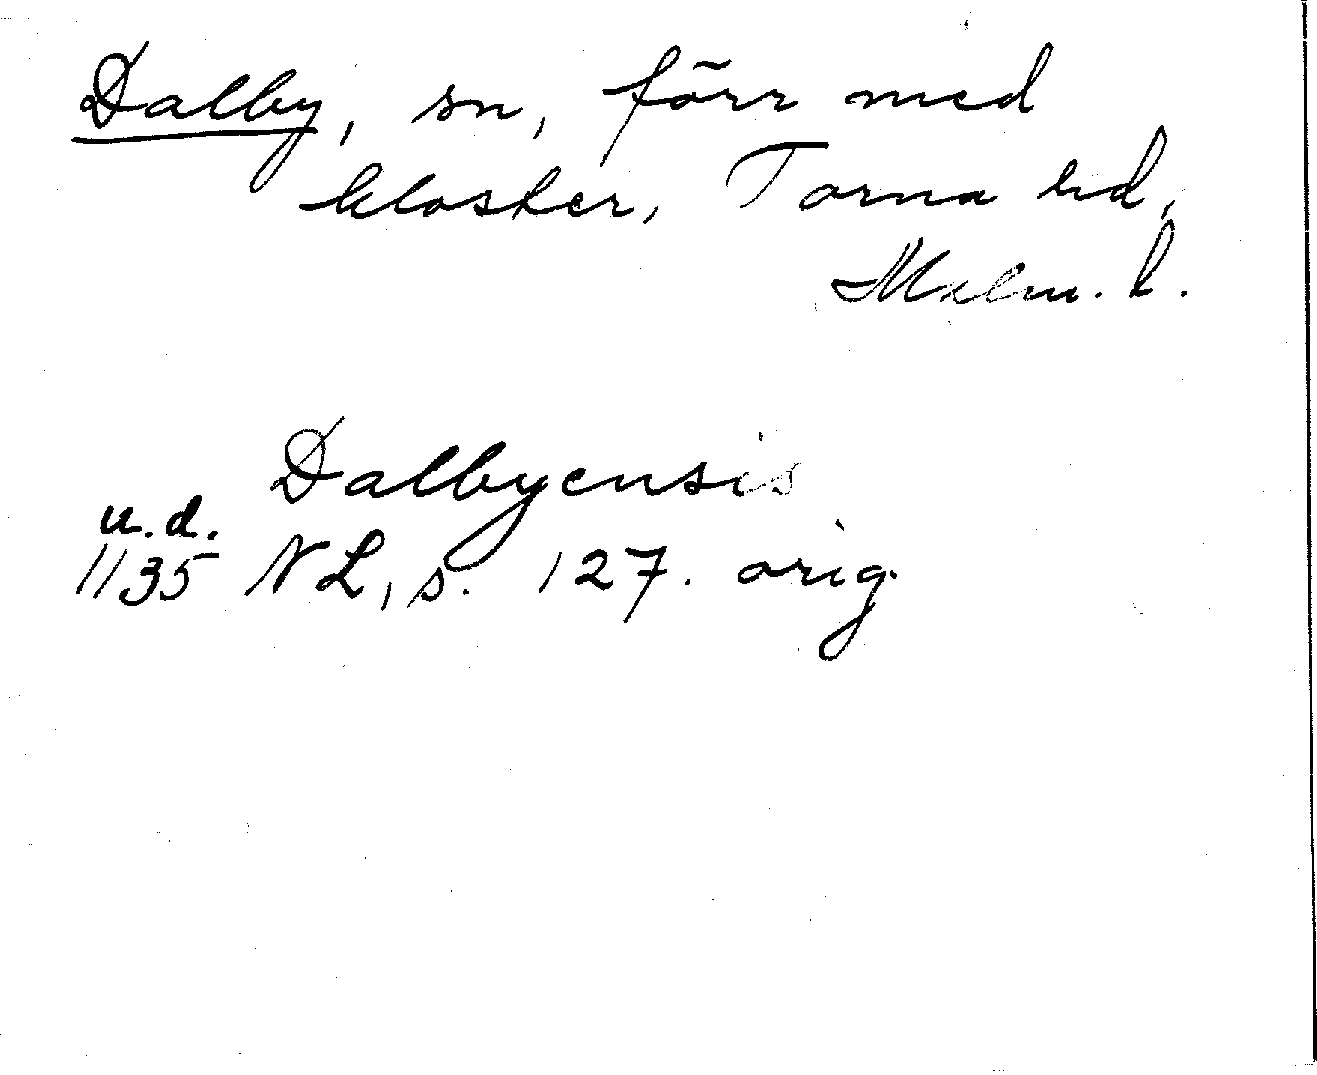 Dalby, sn, förr med
kloster, Torna hd,
Malm. l.
Dalbyensis
u.d.
1135 NL, s. 127. orig.